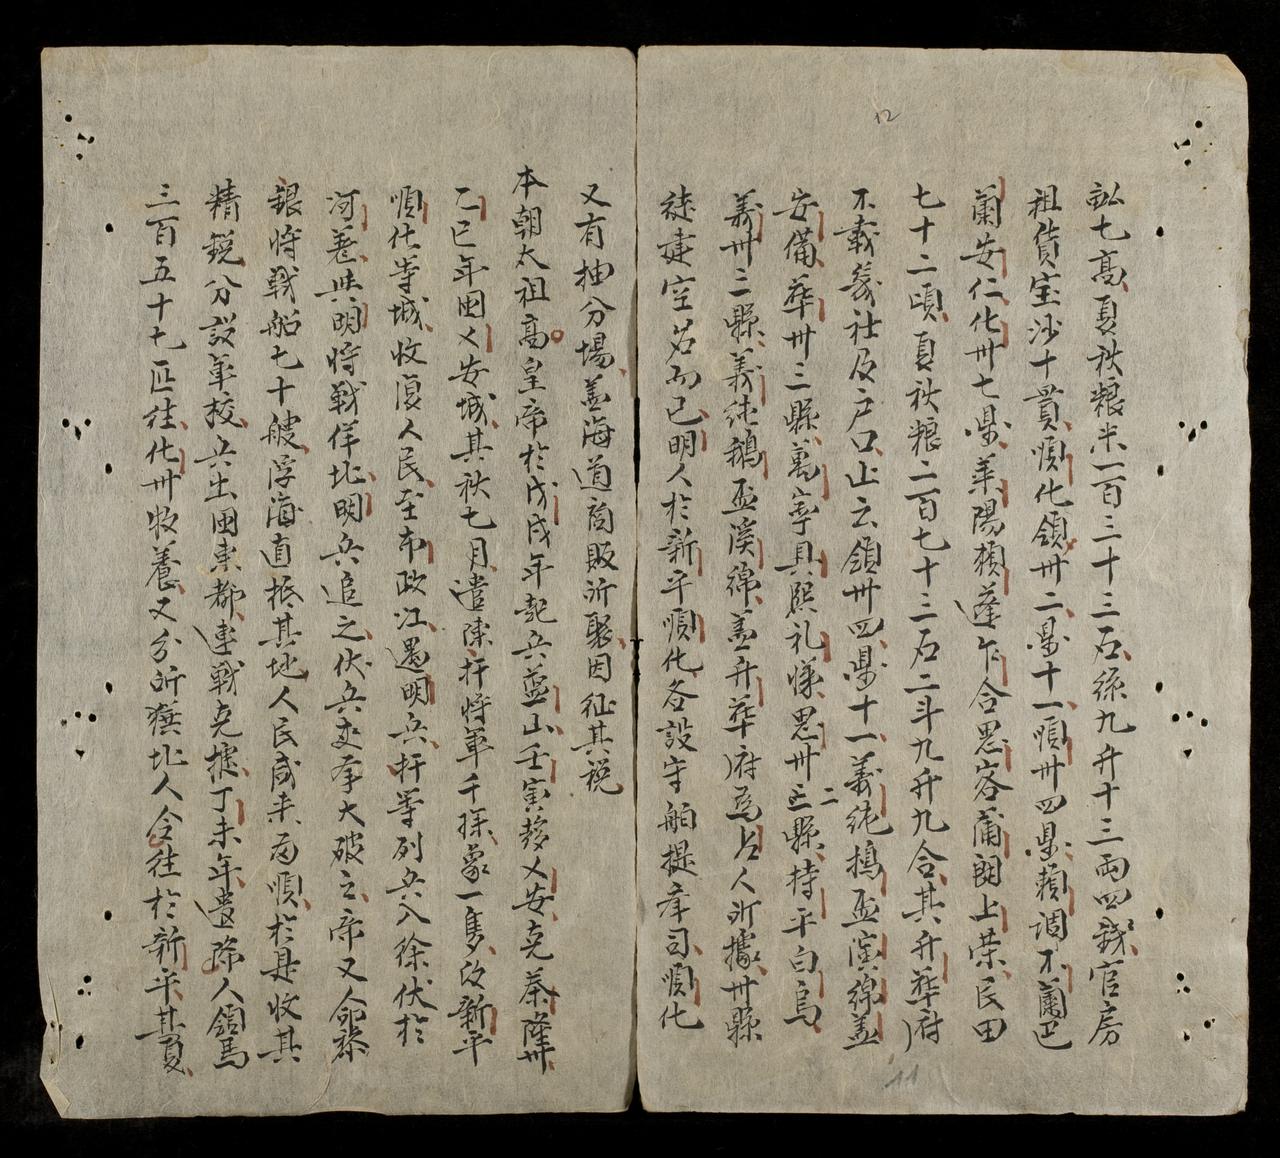 訟七高夏秋粮米一百三十三石絲九升十三両四錢官房
租貨宝沙十貫順化領卅二県十一順卅四県頼調不蘭巴
蘭安仁化卅七県茶陽頼蓬乍令思容蒲朗上栄民田
七十二頃夏秋粮二百七十三石二斗九升九合其升華府
不載茂社及户口止云領卅四県十一義純鵝盃溪綿盖
安備華卅三縣萬寧具熙礼悌思卅二縣持平白烏
義卅三縣義純鵝盃溪綿盖升華府為占人所據卅縣
徒建空名而已明人於新平順化各設守舶提挙司順化
又有抽分場盖海道商販所聚因征其税
本朝太祖高皇帝於戊戌年起兵藍山壬寅移乂安克茶隆州
乙巳年囲乂安城其秋七月遣陳扞将軍千採象一隻攻新平
順化等城收復人民至布政江遇明兵扞等列兵入徐伏於
河暮與明将戦佯北明兵追之伏兵夾挙大破之帝又命黎
銀将戦船七十艘浮海直抵其地人民咸来府順於是收其
精鋭分設軍校兵出囲東都連戦克捷丁未年遣降人領馬
三百五十七匹往化卅牧養又分所獲北人令往於新平其夏
12
11